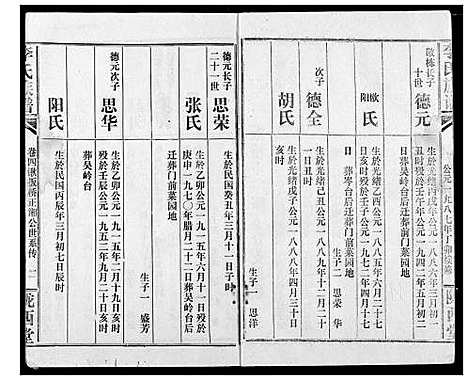 李氏族谱
公元一九八七年
陇西堂
敬栋长子
二十世
德元
生於光绪丙戌年公元一八八六年三月初一
日丑时
殁於公元一九四二年五月初一
日葬
吴岭台后迁葬门前菜园地
欧阳氏
生於光绪乙酉公元一八八五年
日亥时
日葬岑台后迁葬门前菜园地
生子二 思荣 华
次子
德全
生於光绪己丑公元一八八九年十二月二日亥时
胡氏
生於光绪戊子公元一八八八年四月三日
亥时
生子一 思洋
德元长子
二十一世
思荣
生於民国癸丑年三月十一日子时
张氏
生於乙卯公元一九一五年六月十一日殁於
庚申一九七〇年腊月二十一日葬吴岭台后
迁葬门前菜园地
生子一 盛芳
德元次子
思华
生於乙卯公元一九一五年二月十九日亥时
殁於壬辰公元一九五二年九月二十日亥时
葬吴岭台
阳氏
生於民国丙辰年三月初七日辰时
李氏族谱
卷四楸版桥正湘公世系传
二
陇西堂